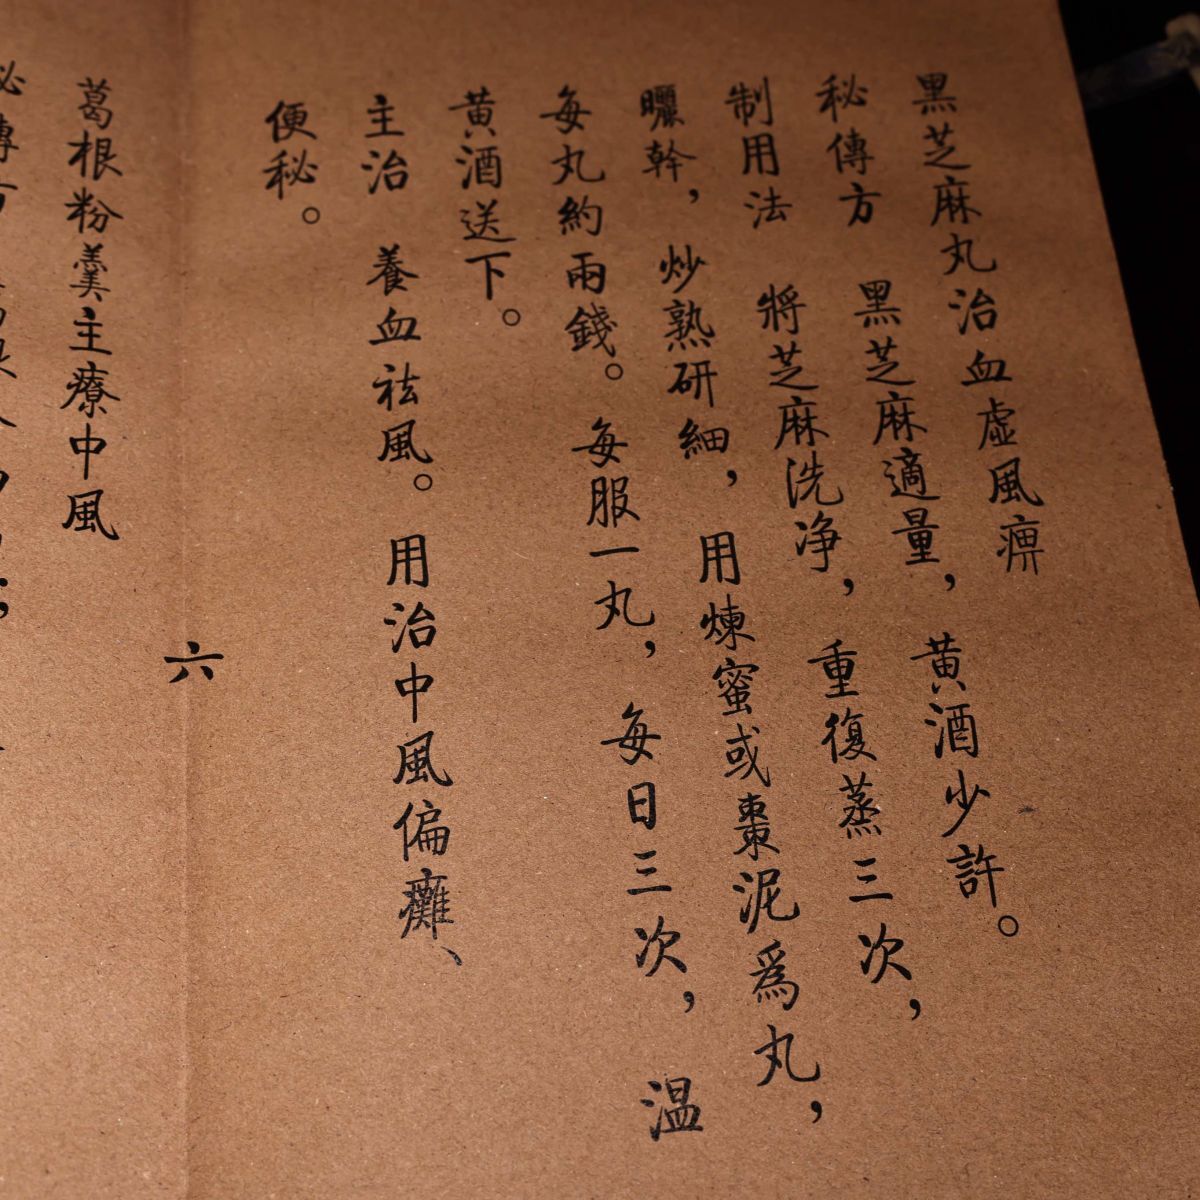 黑芝麻丸治血虛風痹
秘傳方　黑芝麻適量，黄酒少許。
制用法　將芝麻洗净，重復蒸三次，
曬幹，炒熟研細，用煉蜜或棗泥爲丸，
每丸約兩錢。每服一丸，每日三次，温
黄酒送下。
主治　養血祛風。用治中風偏癱、
便秘。
六
葛根粉羹主療中風
秘傳方